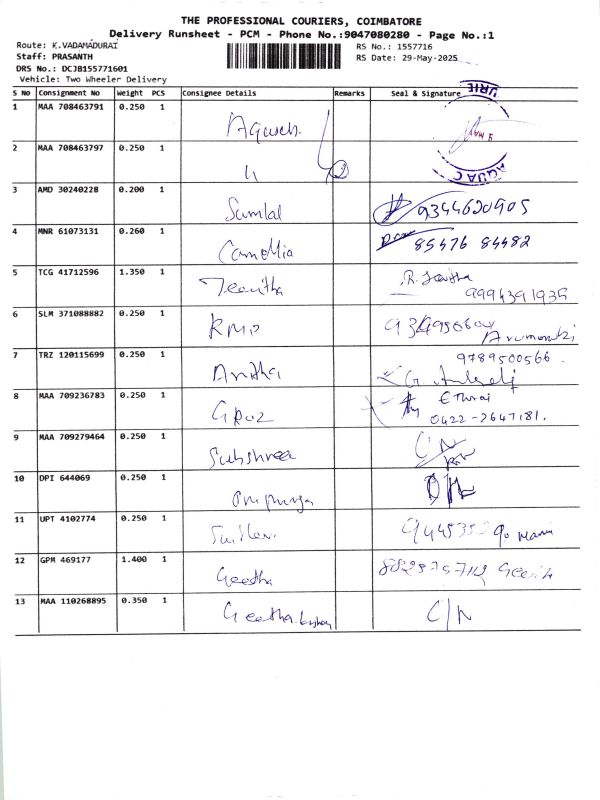 THE PROFESSIONAL COURIERS, COIMBATORE
Delivery Runsheet - PCM - Phone No.:9047080280 - Page No.:1
Route: K.VADAMADURAI
RS No.: 1557716
Staff: PRASANTH
RS Date: 29-May-2025
DRS No.: DCJB155771601
Vehicle: Two Wheeler Delivery
S No Consignment No Weight PCS Consignee Details Remarks Seal & Signature
1 MAA 708463791 0.250 1
2 MAA 708463797 0.250 1 AQUA C
3 AMD 30240228 0.200 1 Samlal 9344620905
4 MNR 61073131 0.260 1 Camellia 85476 84482
5 TCG 41712596 1.350 1 9994391935
6 SLM 371088882 0.250 1 KMP
7 TRZ 120115699 0.250 1 Anitha 9789500566.
8 MAA 709236783 0.250 1 0422-2647181.
9 MAA 709279464 0.250 1 Subshree C/N
10 DPI 644069 0.250 1
11 UPT 4102774 0.250 1
12 GPM 469177 1.400 1 Geetha
13 MAA 110268895 0.350 1 C/N